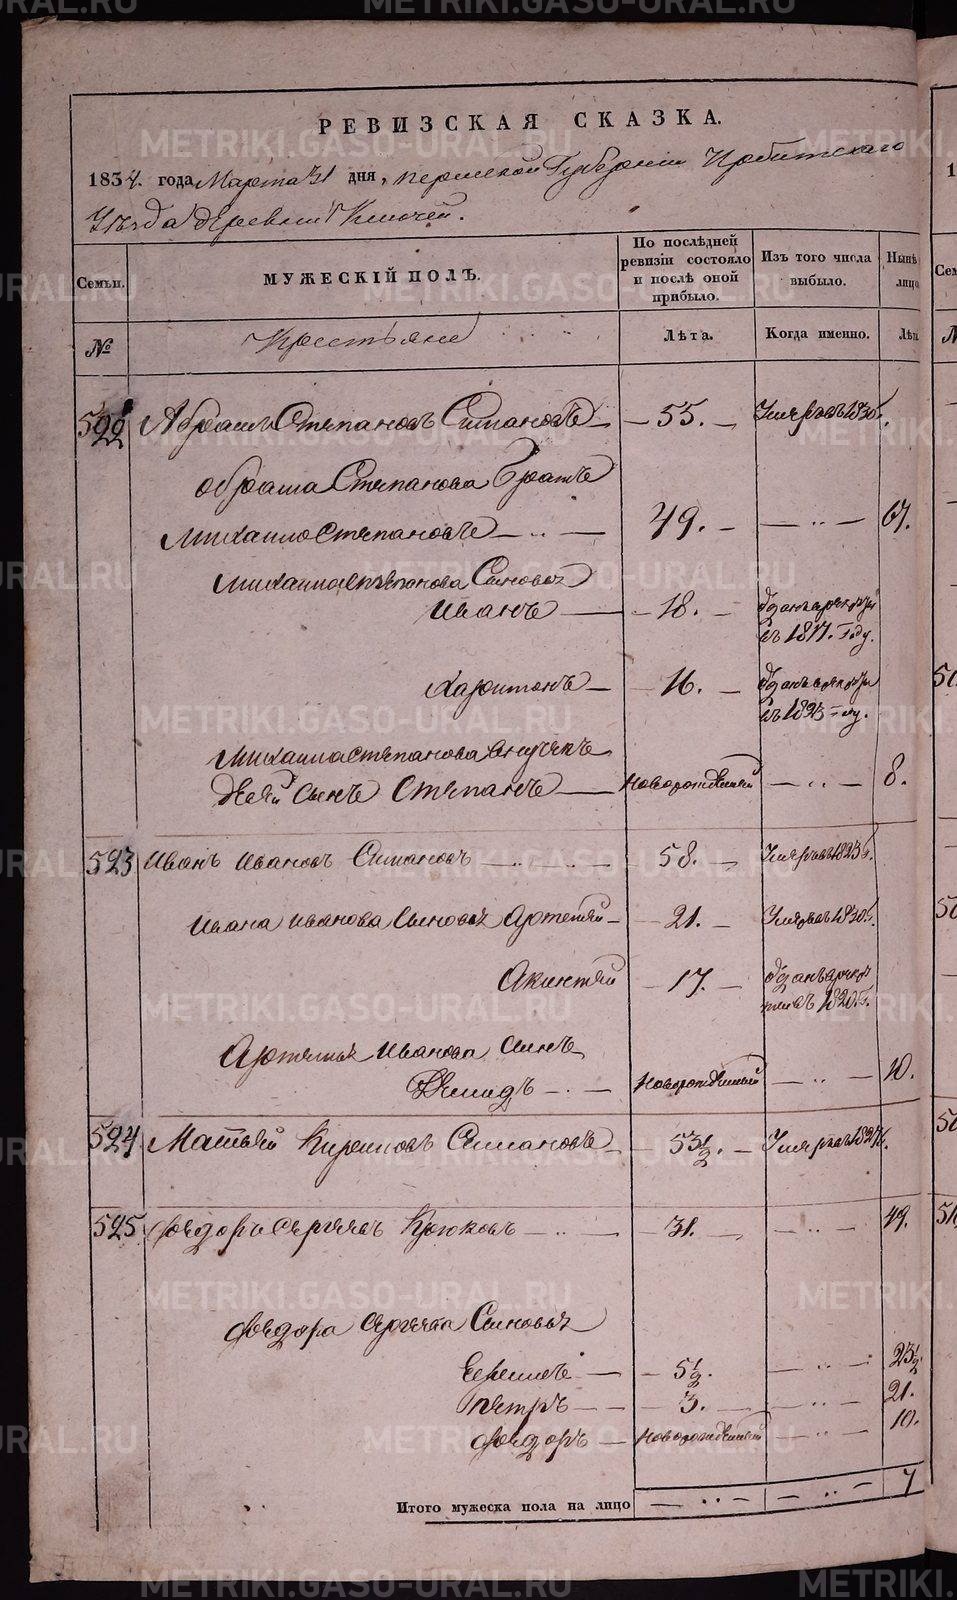 РЕВИЗСКАЯ СКАЗКА.
1834. года Марта 31 дня, Пермской Губернiи Ирбитскаго
Уѣзда деревни Ключей.
Семьи. МУЖЕСКІЙ ПОЛЪ. По послѣдней ревизіи состояло и послѣ оной прибыло. Изъ того числа выбыло. Нынѣ лицо
№ Крестьяне Лѣта. Когда именно. Лѣт
522 Абрамъ Степановъ Симановъ — 55. — Умеръ въ 1830 г.
Обрама Степанова Братъ
Михаило Степановъ — 49. — — 67.
Михаила Степанова Сыновья
Иванъ — 18. —
въ 1817. году.
Харитонъ — 16. —
въ 1823 году.
Михаила Степанова
сынъ Степанъ — Новорожденный — 8.
523 Иванъ Ивановъ Симановъ — 58. — Умеръ въ 1823 г.
Ивана Иванова Сыновья Артемий — 21. — Умеръ въ 1830 г.
Акинтий — 17. —
въ 1820 г.
Артемья Иванова сынъ
Демидъ — Новорожденный — 10.
524 Матвей Кириловъ Симановъ — 53½. — Умеръ въ
525 Федоръ Сергеевъ Крюковъ — 31. — — 49.
Федора Сергеева Сыновья
Еремей — 5½. — 23½
Петръ — 3. — 21.
Федоръ — Новорожденный — 10.
Итого мужеска пола на лицо — — 7
METRIKI.GASO-URAL.RU